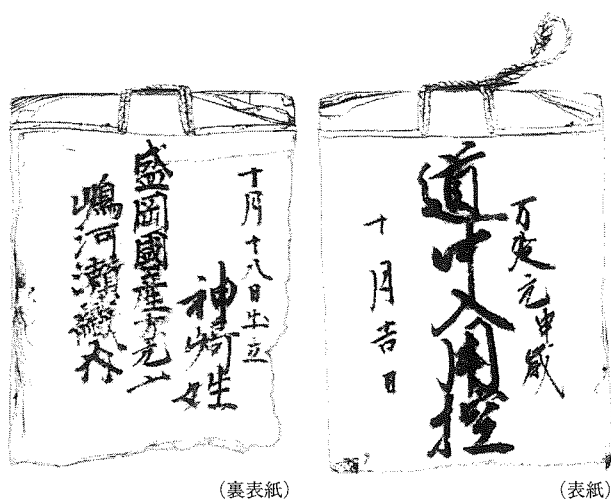 万延元申歳
道中入用控
十月吉日
(表紙)
十月十八日出立
神崎姓
盛岡國産方元〆
嶋河瀬織
(裏表紙)